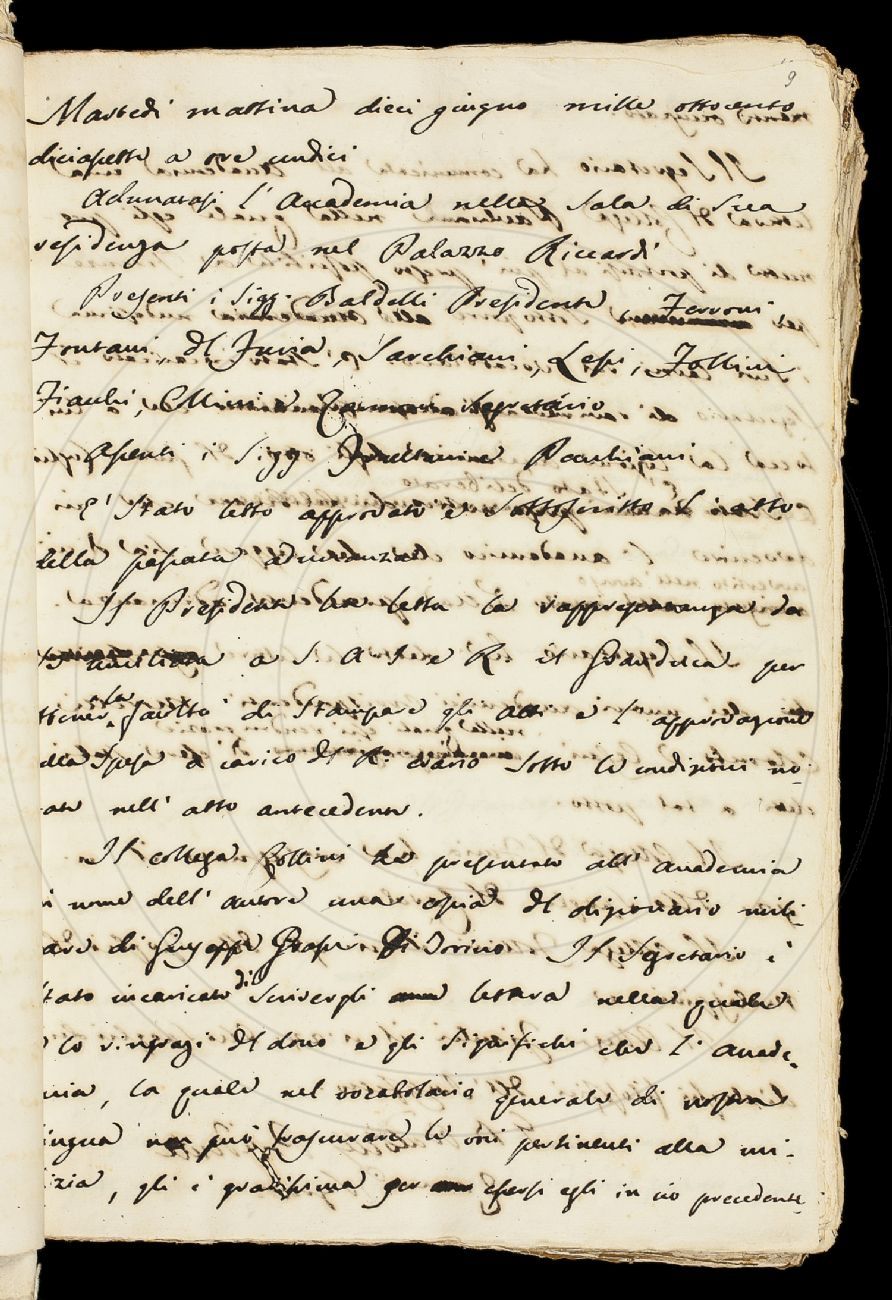 9
Martedì mattina dieci giugno mille ottocento
diciasette a ore undici
Adunatasi l'Accademia nella Sala di Sua
residenza posta nel Palazzo Riccardi
Presenti i Sigg. Baldelli Presidente, Ferroni,
Fontani, del Furia, Sarchiani, Lessi, Follini
Fiacchi, Collini e Zannoni Segretario
Assenti i Sigg Paulhiani
E' Stato letto approvato e Sottoscritto l'atto
della passata adunanza
Il Presidente ha letta la rappresentanza da
a S. A. I e R. il Granduca per
ttener la facoltà di Stampare gli atti e l'approvazione
ella Spesa a carico del R. erario Sotto le condizioni no-
ate nell'atto antecedente.
Il collega Collini ha presentato all'accademia
i nome dell'autore una copia del dizionario mili-
are di Giuseppe Grassi di Torino. Il Segretario è
tato incaricato di Scrivergli lettera nella quale
lo ringrazi del dono e gli Significhi che l'accade-
mia, la quale nel vocabolario generale di nostra
ingua non può trascurare le voci pertinenti alla mi-
izia, gli è gratissima per essersi egli in ciò precedente-